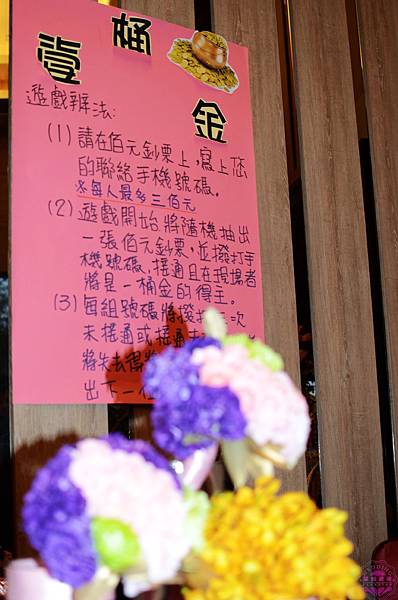 壹桶金
遊戲辦法:
(1) 請在佰元鈔票上,寫上您
的聯絡手機號碼。
※每人最多三佰元
(2) 遊戲開始將隨機抽出
一張佰元鈔票,並撥打手
機號碼,接通且在現場者
將是一桶金的得主。
(3) 每組號碼將撥打 次
未接通或接通
將失去得
出下一